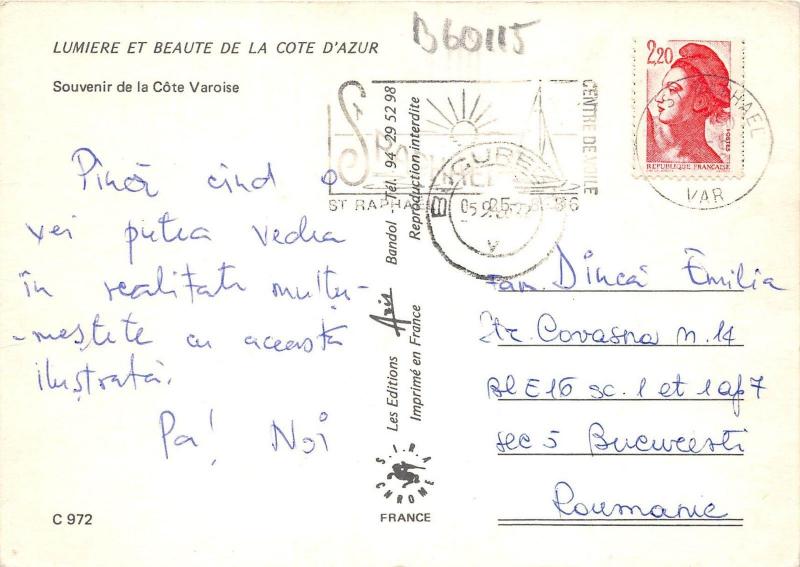 B60115
LUMIERE ET BEAUTE DE LA COTE D'AZUR
Souvenir de la Côte Varoise
Pînă cînd o
vei putea vedea
în realitate mulțu-
-meștete cu această
ilustrată.
Pa! Noi
C 972
Les Editions Aris Bandol - Tél. 94 29 52 98
Imprimé en France Reproduction interdite
S.I.R.A.
CHROME
FRANCE
ST RAPHAEL
CENTRE DE VOILE
VAR
2,20
REPUBLIQUE FRANÇAISE
Fam. Dincă Emilia
Str. Covasna n. 14
Bl E 16 sc. 1 et 1 ap 7
sec 5 Bucuresti
Roumanie